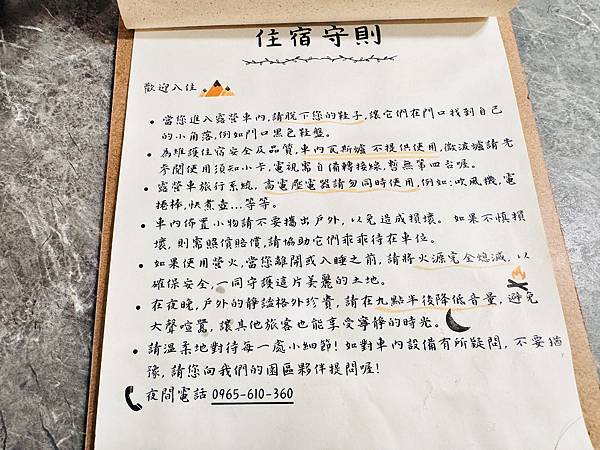 住宿守則
歡迎入住
• 當您進入露營車內,請脫下您的鞋子,讓它們在門口找到自己
的小角落,例如門口黑色鞋盤。
• 為維護住宿安全及品質,車內瓦斯爐 不提供使用,微波爐請先
參閱使用須知小卡,電視需自備轉接線,暫無第四台喔。
• 露營車旅行系統,高電壓電器請勿同時使用,例如:吹風機,電
捲棒,快煮壺...等等。
• 車內佈置小物請不要攜出戶外,以免造成損壞。 如果不慎損
壞,則需照價賠償,請協助它們乖乖待在車位。
• 如果使用營火,當您離開或入睡之前,請將火源完全熄滅,以
確保安全,一同守護這片美麗的土地。
• 在夜晚,戶外的靜謐格外珍貴,請在九點半後降低音量,避免
大聲喧囂,讓其他旅客也能享受寧靜的時光。
• 請溫柔地對待每一處小細節! 如對車內設備有所疑問,不要猶
豫,請您向我們的園區夥伴提問喔!
夜間電話 0965-610-360